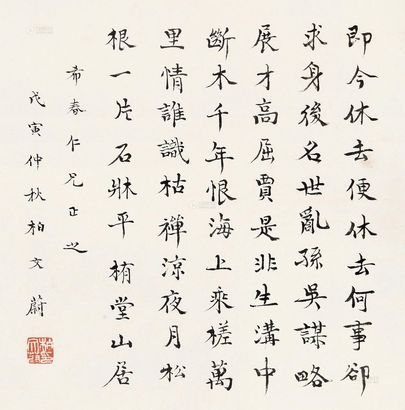 即今休去便休去何事卻
求身後名世亂孫吳謀略
展才高屈賈是非生溝中
斷木千年恨海上乘槎萬
里情誰識枯禪涼夜月松
根一片石牀平 栯堂山居
希春仁兄正之
戊寅仲秋柏文蔚